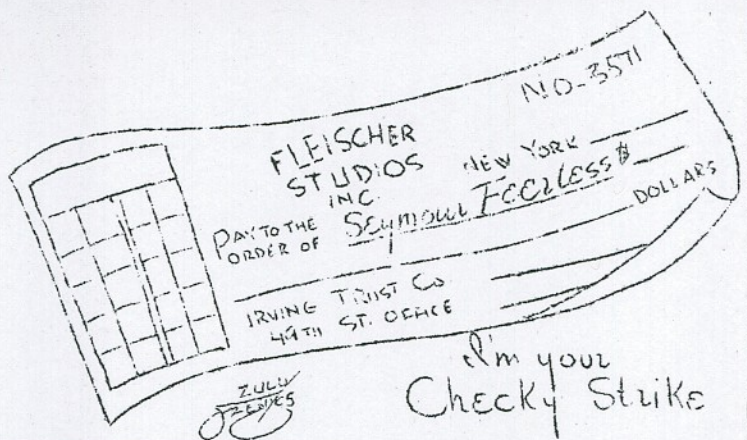 NO-3571
FLEISCHER
STUDIOS
INC.
NEW YORK
PAY TO THE
ORDER OF Seymour Feerless $
DOLLARS
IRVING TRUST CO
49TH ST. OFFICE
I'm your
Checky Strike
ZULU